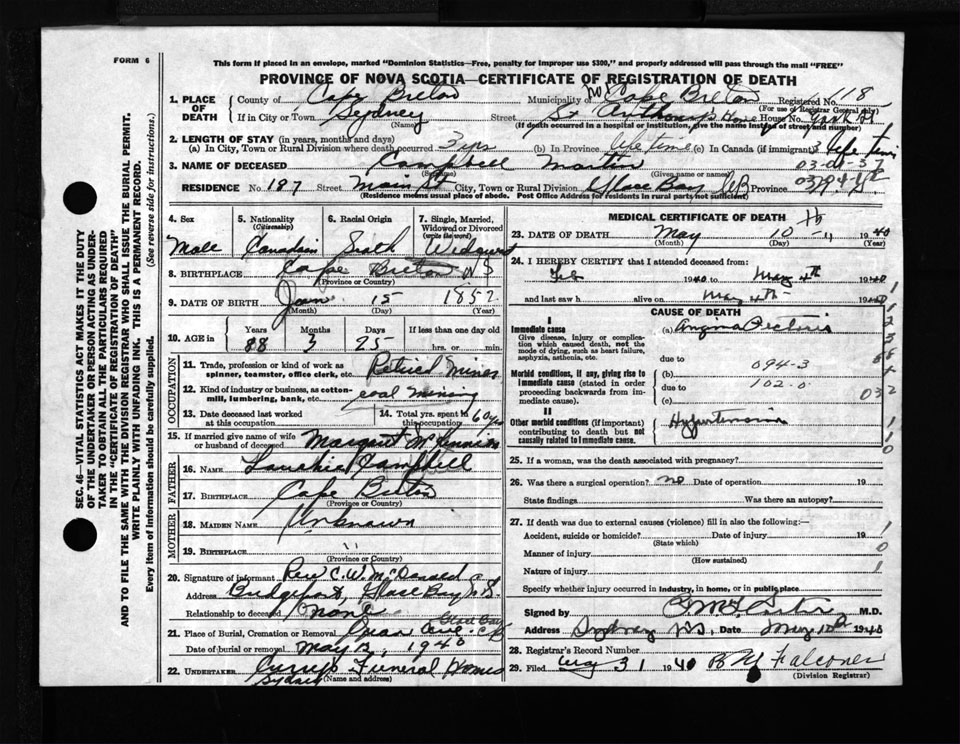 FORM 6
This form if placed in an envelope, marked "Dominion Statistics—Free, penalty for improper use $300," and properly addressed will pass through the mail "FREE"
PROVINCE OF NOVA SCOTIA—CERTIFICATE OF REGISTRATION OF DEATH
1. PLACE OF DEATH County of Cape Breton Municipality of Cape Breton Registered No. 118
(For use of Registrar General only)
If in City or Town Sydney Street St Anthony's Home House No. York St
(Name) (If death occurred in a hospital or institution, give the name instead of street and number)
2. LENGTH OF STAY (in years, months and days)
(a) In City, Town or Rural Division where death occurred 3 yrs (b) In Province life time (c) In Canada (if immigrant) life time
3. NAME OF DECEASED Campbell Martin 03-05-37
(Surname) (Given name or names)
RESIDENCE No. 187 Street Main St City, Town or Rural Division Glace Bay CB Province
(Residence means usual place of abode. Post Office Address for residents in rural parts not sufficient)
4. Sex 5. Nationality (Citizenship) 6. Racial Origin 7. Single, Married, Widowed or Divorced (write the word)
Male Canadian Scotch Widower
8. BIRTHPLACE Cape Breton N S
(Province or Country)
9. DATE OF BIRTH Jan 15 1852
(Month) (Day) (Year)
10. AGE in Years Months Days If less than one day old
88 3 25 hrs. or min.
OCCUPATION
11. Trade, profession or kind of work as spinner, teamster, office clerk, etc. Retired Miner
12. Kind of industry or business, as cotton-mill, lumbering, bank, etc. coal mining
13. Date deceased last worked at this occupation 14. Total yrs. spent in this occupation 60 yrs
15. If married give name of wife or husband of deceased Margaret McKinnon
FATHER
16. NAME Lauchie Campbell
17. BIRTHPLACE Cape Breton
(Province or Country)
MOTHER
18. MAIDEN NAME Unknown
19. BIRTHPLACE "
(Province or Country)
20. Signature of informant Rev C. W. McDonald
Address Bridgeport, Glace Bay N.S.
Relationship to deceased None
21. Place of Burial, Cremation or Removal Ocean Ave. Glace Bay C B
Date of burial or removal May 12, 1940
22. UNDERTAKER Currys Funeral Homes
Sydney (Name and address)
MEDICAL CERTIFICATE OF DEATH
23. DATE OF DEATH May 10 th 1940
(Month) (Day) (Year)
24. I HEREBY CERTIFY that I attended deceased from:
Feb 1940 to May 4th 1940
and last saw h alive on May 4th 1940
CAUSE OF DEATH
I
Immediate cause (a) Angina Pectoris
Give disease, injury or complication which caused death, not the mode of dying, such as heart failure, asphyxia, asthenia, etc. due to
Morbid conditions, if any, giving rise to immediate cause (stated in order proceeding backwards from immediate cause). (b) 094-3
due to 102-0
(c) 032
II
Other morbid conditions (if important) contributing to death but not causally related to immediate cause. Hypertension
25. If a woman, was the death associated with pregnancy?
26. Was there a surgical operation? no Date of operation 19
State findings Was there an autopsy?
27. If death was due to external causes (violence) fill in also the following:
Accident, suicide or homicide? Date of injury 19
(State which)
Manner of injury
(How sustained)
Nature of injury
Specify whether injury occurred in industry, in home, or in public place
Signed by M.D.
Address Sydney N.S. Date May 10th 1940
28. Registrar's Record Number
29. Filed Aug 31 1940 Falconer
(Division Registrar)
SEC. 46—VITAL STATISTICS ACT MAKES IT THE DUTY OF THE UNDERTAKER OR PERSON ACTING AS UNDERTAKER TO OBTAIN ALL THE PARTICULARS REQUIRED IN THE "CERTIFICATE OF REGISTRATION OF DEATH" AND TO FILE THE SAME WITH THE DIVISION REGISTRAR WHO SHALL ISSUE THE BURIAL PERMIT.
WRITE PLAINLY WITH UNFADING INK. THIS IS A PERMANENT RECORD.
Every item of information should be carefully supplied. (See reverse side for instructions.)